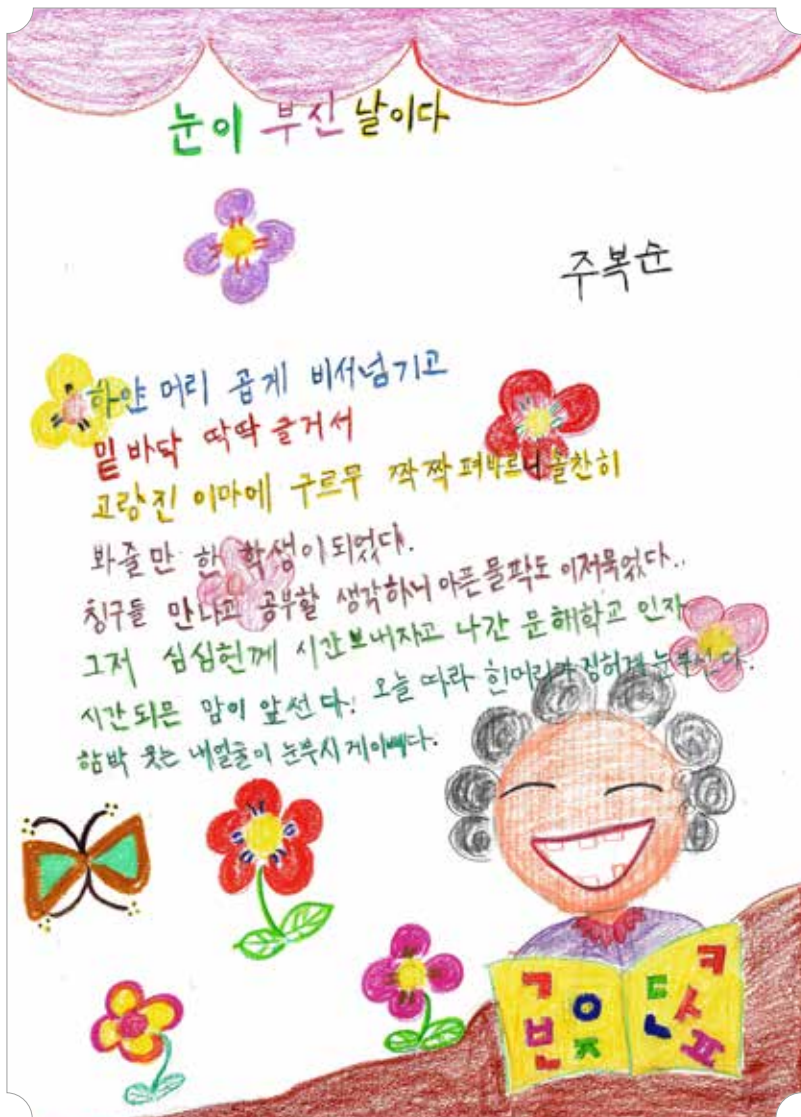 눈이 부신 날이다
주복순
하얀 머리 곱게 비서넘기고
밑바닥 딱딱 글거서
고랑진 이마에 구르무 짝짝 펴바르니 솔찬히
봐줄만 한 학생이되었다.
칭구들 만나고 공부할 생각하니 아픈물팍도 이저묵었다..
그저 심심헌께 시간보내자고 나간 문해학교 인자
시간되믄 맘이 앞선다. 오늘 따라 힌머리가 징허게 눈부신다.
함박 웃는 내얼굴이 눈부시게이뻐다.